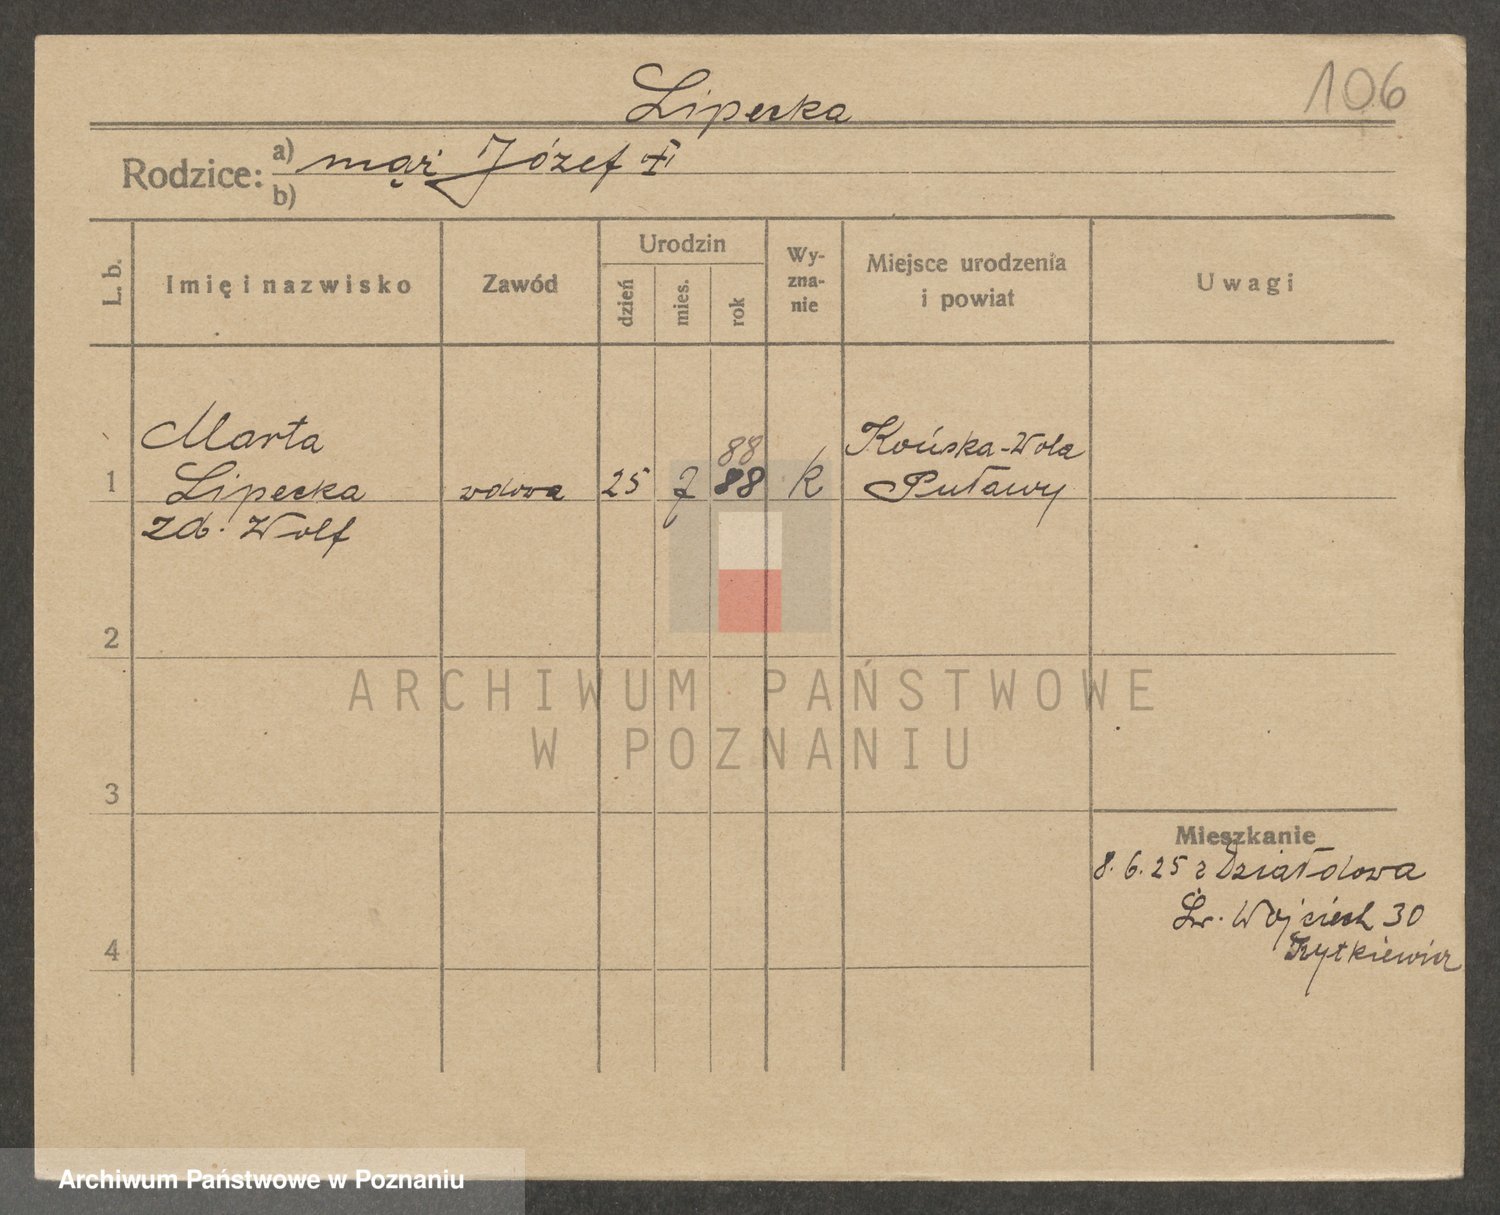 106
Lipecka
Rodzice: a) mąż Józef ‡
b)
L. b.
Imię i nazwisko
Zawód
Urodzin
dzień
mies.
rok
Wy-
zna-
nie
Miejsce urodzenia
i powiat
Uwagi
88
Marta Końska-Wola
1 Lipecka wdowa 25 7 88 k Puławy
zd. Wolf
2
ARCHIWUM PAŃSTWOWE
W POZNANIU
3
Mieszkanie
8. 6. 25 z Działdowa
Św. Wojciech 30
4
Archiwum Państwowe w Poznaniu